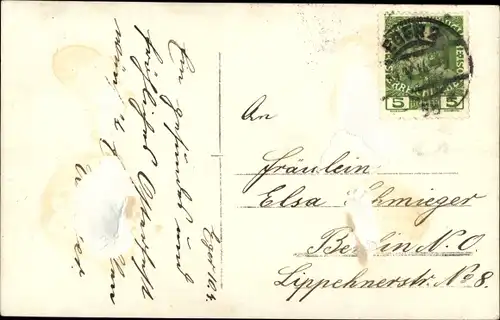 Eger 10.4.
Ein gesundes und
fröhliches Osterfest
wünscht
An
Fräulein
Elsa Schmieger
Berlin N.O.
Lippehnerstr. No 8.
EGER 2
5 5